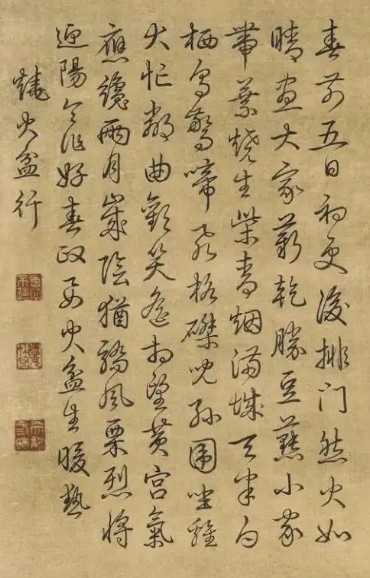 春前五日初更後排門然火如
晴晝大家薪乾勝豆䕸小家
帶葉燒生柴青烟滿城天半白
栖鳥驚啼飛格磔兒孫圍坐雞
犬忙鄰曲歡笑遙相望黃宮氣
應纔兩月歲陰猶驕風栗烈將
迎陽作好春政要火盆生暖熱
燒火盆行